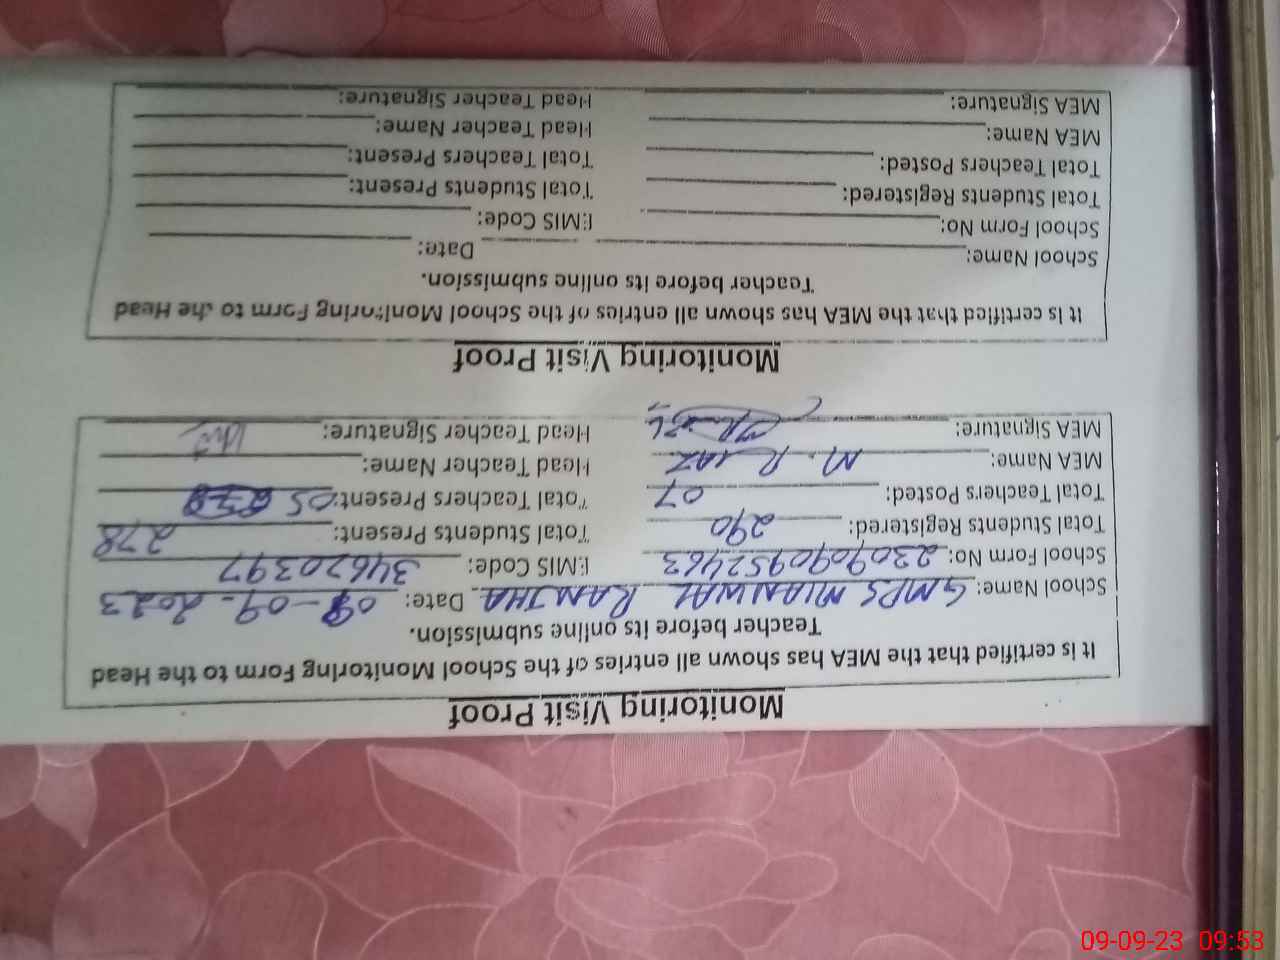 Monitoring Visit Proof
It is certified that the MEA has shown all entries of the School Monitoring Form to the Head
Teacher before its online submission.
School Name: GMPS MIANWAL RANJHA Date: 09-09-2023
School Form No: 23090952463 EMIS Code: 34620397
Total Students Registered: 290 Total Students Present: 278
Total Teachers Posted: 07 Total Teachers Present: 05
MEA Name: M. Riaz Head Teacher Name:
MEA Signature: Head Teacher Signature:
Monitoring Visit Proof
It is certified that the MEA has shown all entries of the School Monitoring Form to the Head
Teacher before its online submission.
School Name: Date:
School Form No: EMIS Code:
Total Students Registered: Total Students Present:
Total Teachers Posted: Total Teachers Present:
MEA Name: Head Teacher Name:
MEA Signature: Head Teacher Signature:
09-09-23 09:53